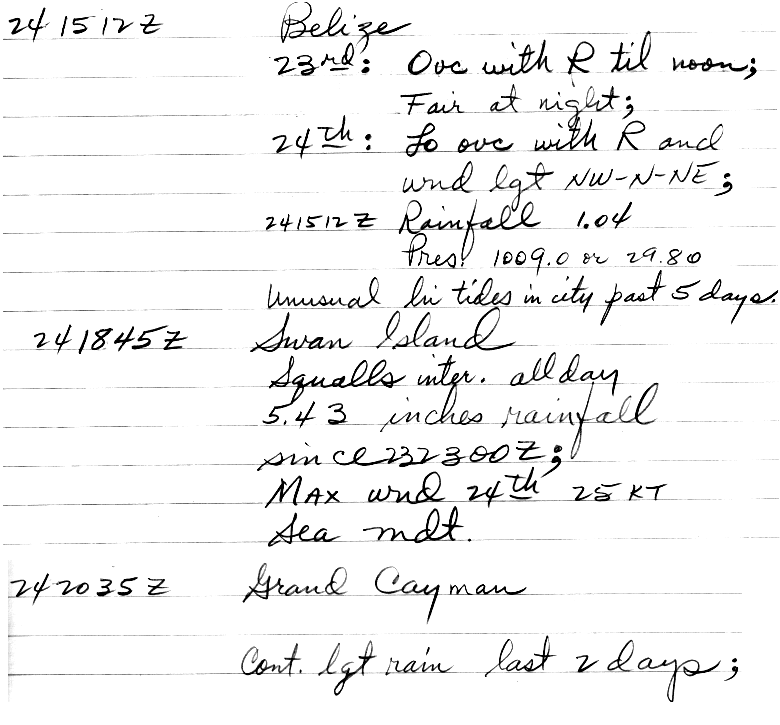 241512Z Belize
23rd: Ovc with R til noon;
Fair at night;
24th: Lo ovc with R and
wnd lgt NW-N-NE;
241512Z Rainfall 1.04
Pres. 1009.0 or 29.80
Unusual hi tides in city past 5 days.
241845Z Swan Island
Squalls inter. all day
5.43 inches rainfall
since 232300Z;
Max wnd 24th 25 KT
Sea mdt.
242035Z Grand Cayman
Cont. lgt rain last 2 days;